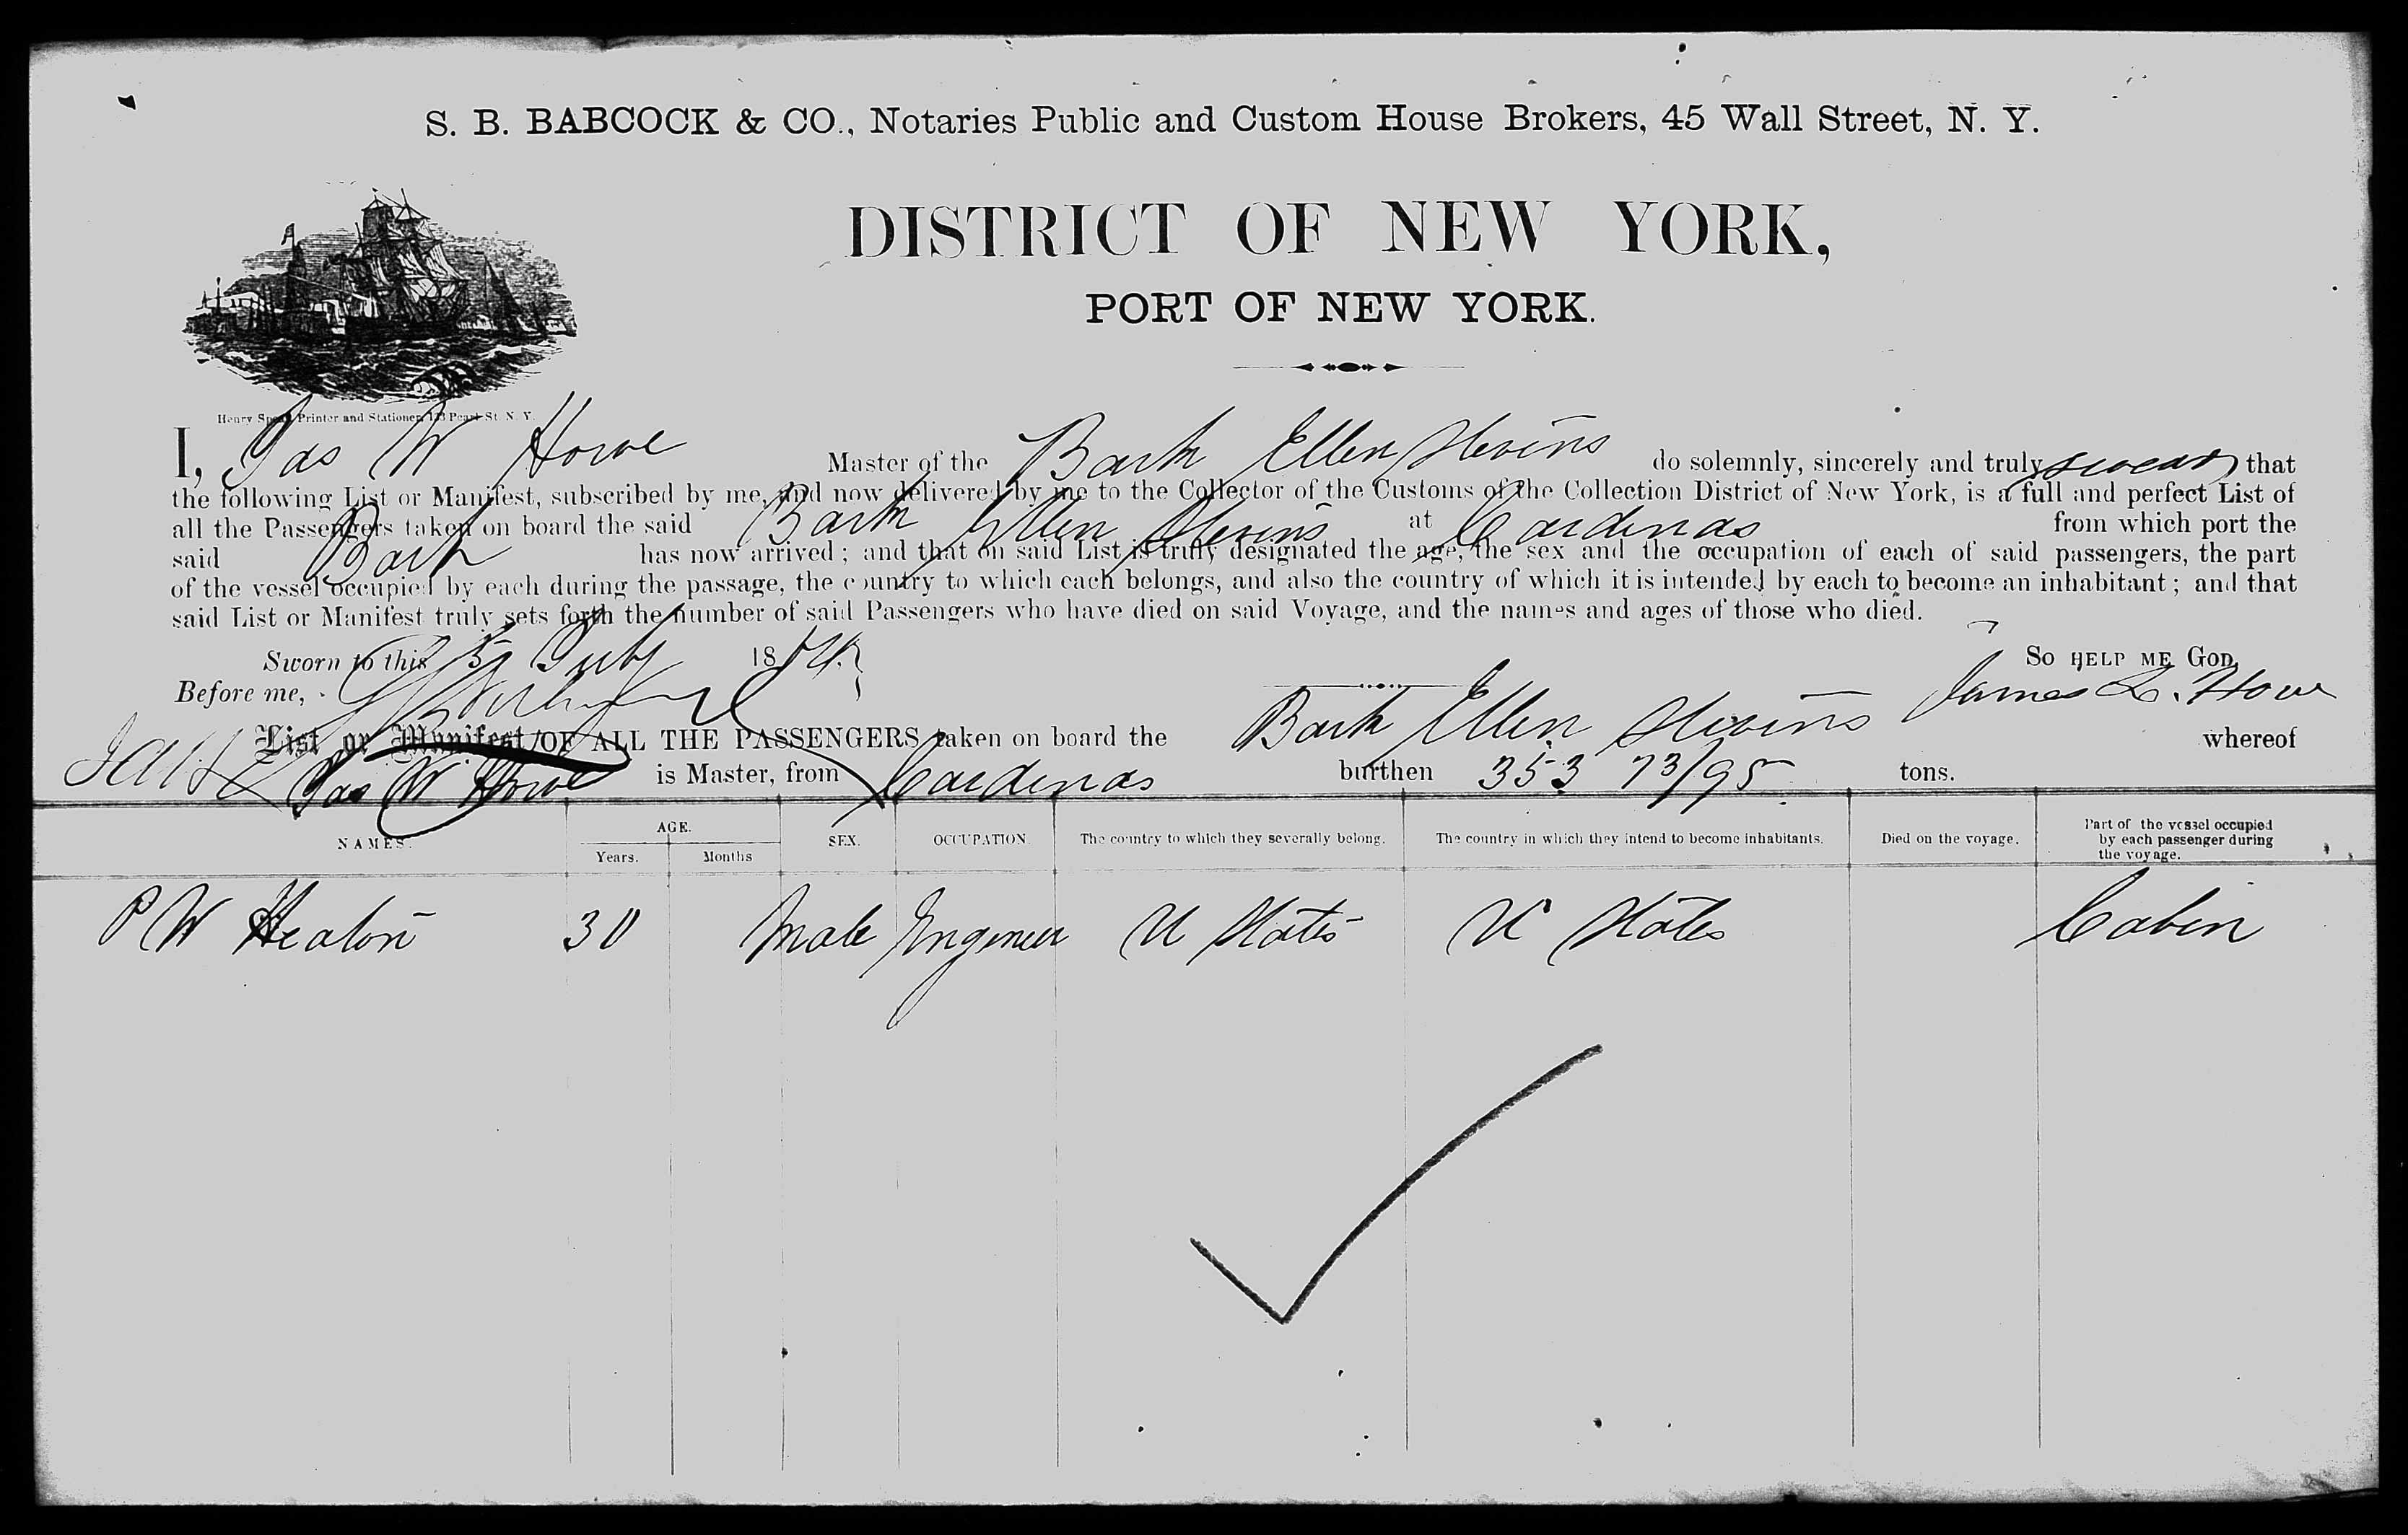 S. B. BABCOCK & CO., Notaries Public and Custom House Brokers, 45 Wall Street, N. Y.
DISTRICT OF NEW YORK,
PORT OF NEW YORK.
Henry Spear, Printer and Stationer, 133 Pearl St. N. Y.
I, Jas W Howe Master of the Bark Ellen Stevins do solemnly, sincerely and truly swear that
the following List or Manifest, subscribed by me, and now delivered by me to the Collector of the Customs of the Collection District of New York, is a full and perfect List of
all the Passengers taken on board the said Bark Ellen Stevins at Cardenas from which port the
said Bark has now arrived; and that on said List is truly designated the age, the sex and the occupation of each of said passengers, the part
of the vessel occupied by each during the passage, the country to which each belongs, and also the country of which it is intended by each to become an inhabitant; and that
said List or Manifest truly sets forth the number of said Passengers who have died on said Voyage, and the names and ages of those who died.
Sworn to this 5 July 18 SO HELP ME GOD,
Before me, James L. Howe
List or Manifest OF ALL THE PASSENGERS taken on board the Bark Ellen Stevins whereof
Jas W Howe is Master, from Cardenas burthen 353 73/95 tons.
NAMES. AGE. Years. Months SEX. OCCUPATION The country to which they severally belong. The country in which they intend to become inhabitants. Died on the voyage. Part of the vessel occupied by each passenger during the voyage.
P W Heaton 30 Male Engineer U States U States Cabin